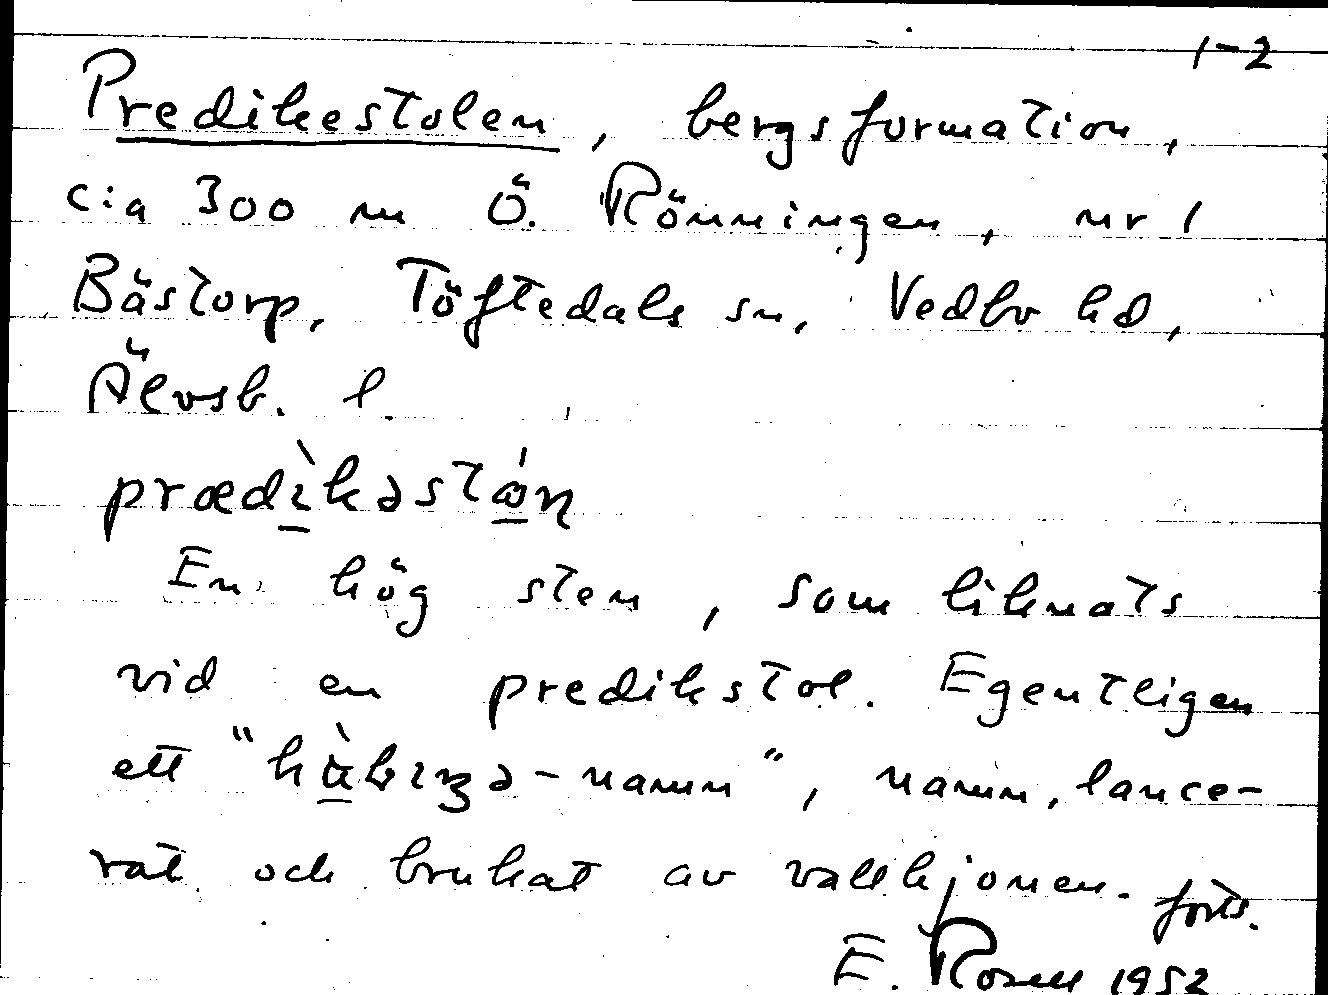 1-2
Predikestolen, bergsformation,
c:a 300 m Ö. Rönningen, nr 1
Bästorp, Töftedals sn, Vedbo hd,
Älvsb. l.
En hög sten, som liknats
vid en predikstol. Egentligen
ett "-namn", namn, lance-
rat och brukat av vallhjonen. forts.
E. Rosell 1952